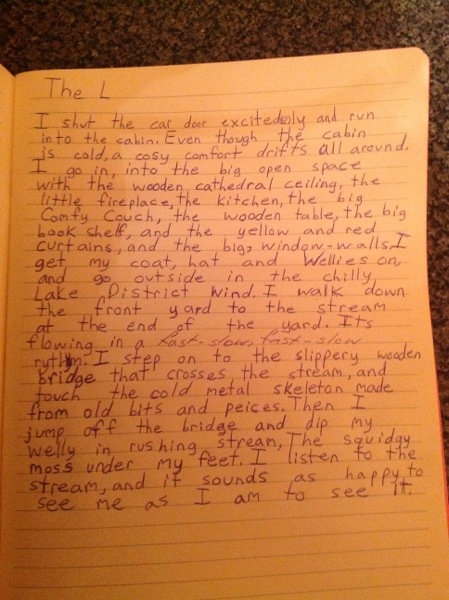 The L
I shut the car door excitedely and run
into the cabin. Even though the cabin
is cold, a cosy comfort drifts all around.
I go in, into the big open space
with the wooden cathedral ceiling, the
little fireplace, the kitchen, the big
Comfy Couch, the wooden table, the big
book shelf, and the yellow and red
curtains, and the big, window-walls. I
get my coat, hat and Wellies on,
and go outside in the chilly
Lake District wind. I walk down
the front yard to the stream
at the end of the yard. Its
flowing in a fast-slow, fast-slow
rythm. I step on to the slippery wooden
bridge that crosses the stream, and
touch the cold metal skeleton made
from old bits and peices. Then I
jump off the bridge and dip my
welly in rushing stream, The squidgy
moss under my feet. I listen to the
stream, and it sounds as happy to
see me as I am to see it.